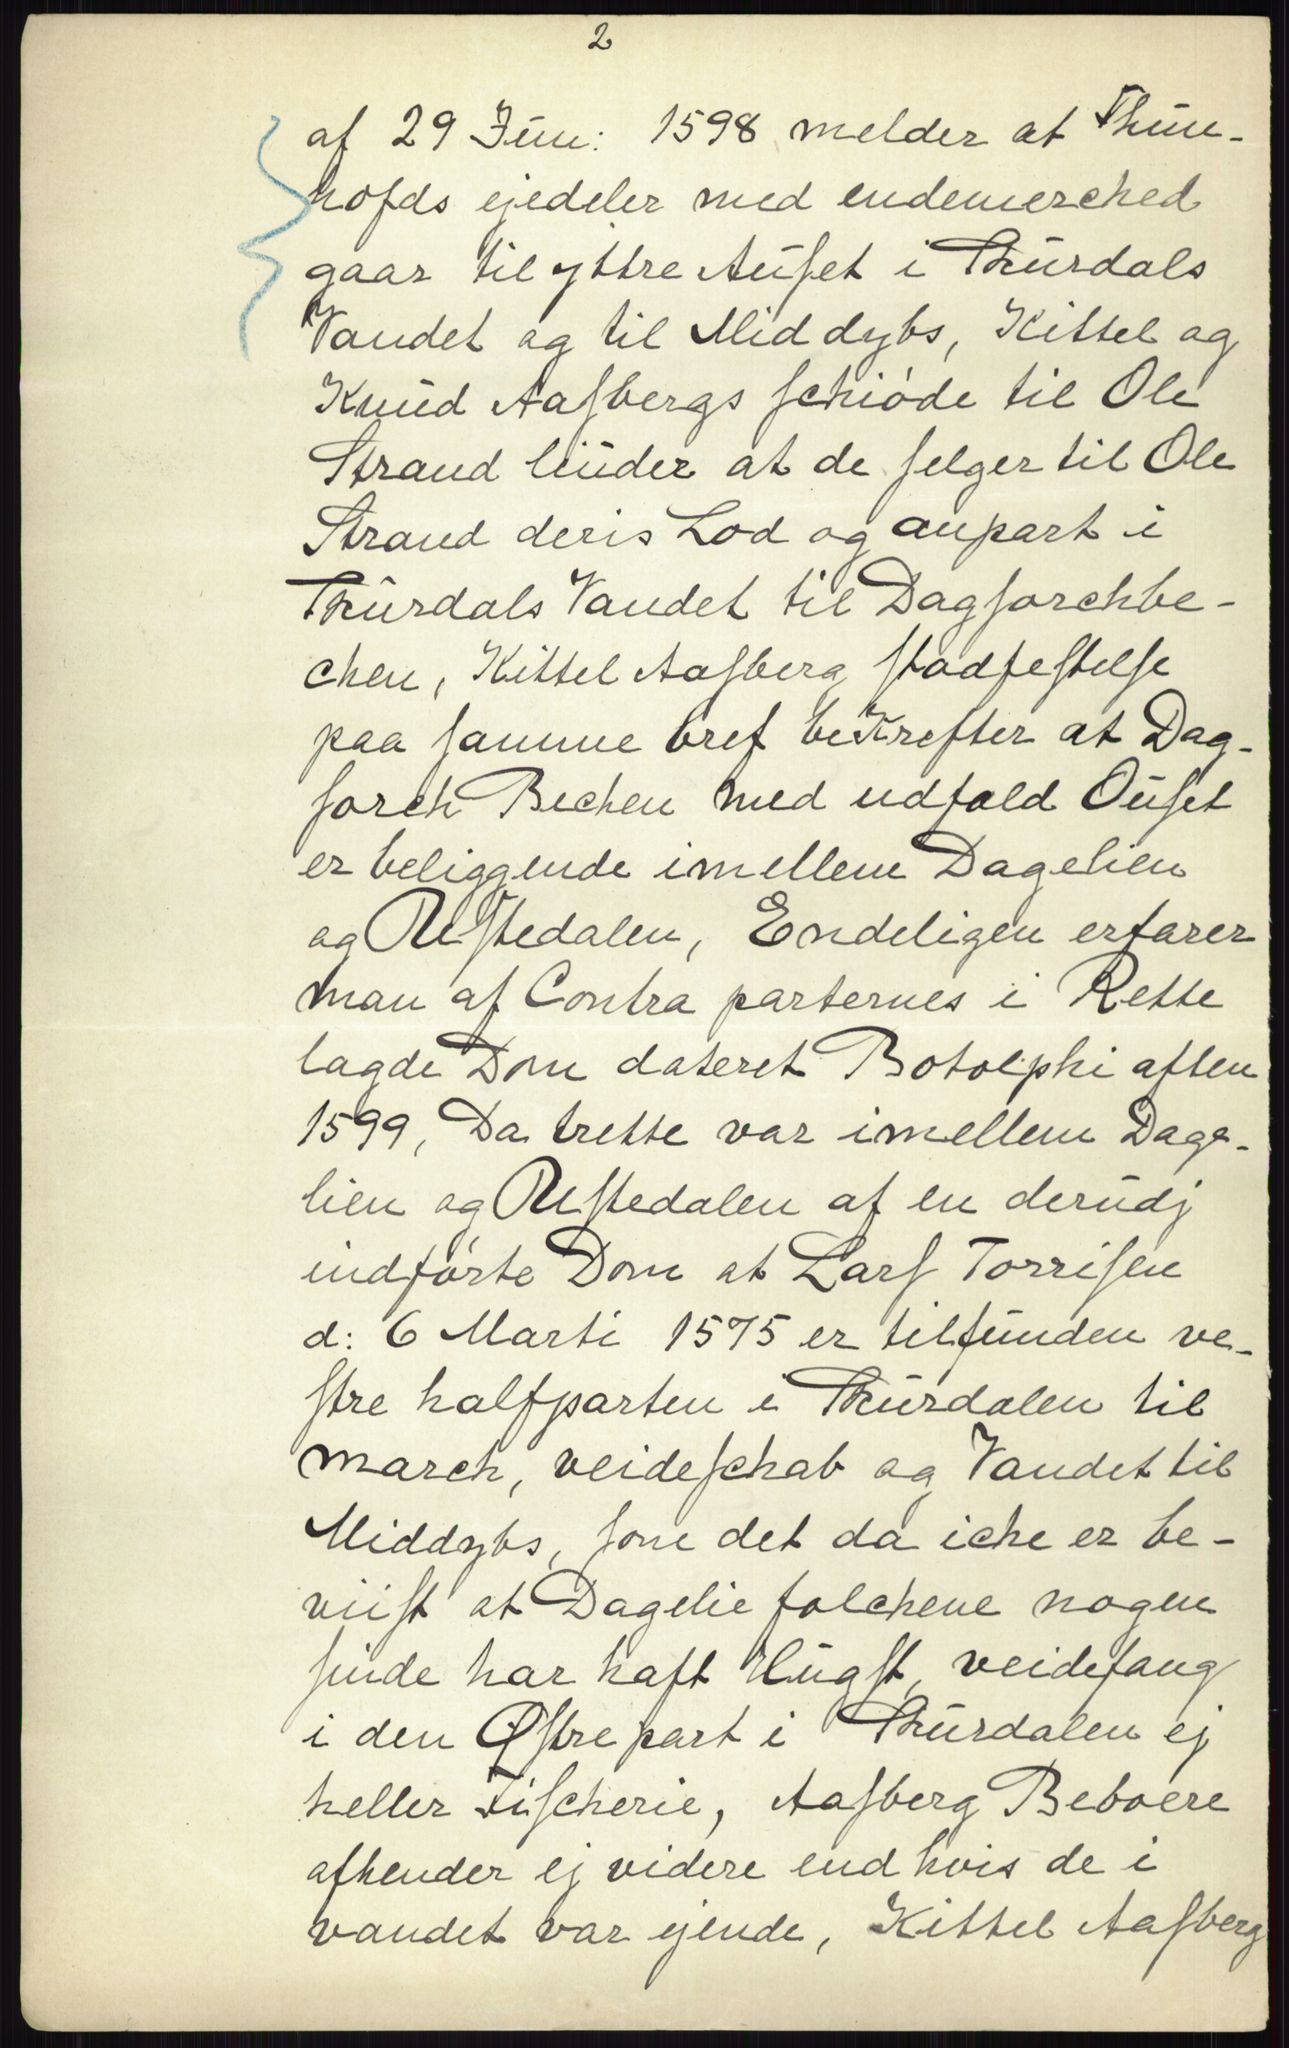 2
af 29 Jun: 1598 melder at Thun-
hofds ejedeler med endemerched
gaar til yttre Auset i Thurdals
Vandet og til Middybs, Kittel og
Knud Aasbergs schiøde til Ole
Strand liuder at de selger til Ole
Strand deris Lod og anpart i
Thurdals Vandet til Dagforchbe-
chen, Kittel Aasberg stadfestelse
paa samme bref bekrefter at Dag-
forch Bechen med udfald Ouset
er beliggende imellem Dagelien
og Rustedalen, Endeligen erfarer
man af Contra parternes i Rette
lagde Dom dateret Botolphi aften
1599, Da trette var imellem Dage-
lien og Rustedalen af en derudj
indførte Dom at Lars Torrisen
d: 6 Marti 1575 er tilfunden ve-
stre halfparten i Thurdalen til
march, veideschab og Vandet til
Middybs, som det da iche er be-
viist at Dagelie folchene nogen
sinde har haft Hugst, veidefang
i den Østre part i Thurdalen ej
heller Fischerie, Aasberg Beboere
afhender ej videre end hvis de i
vandet var ejende, Kittel Aasberg